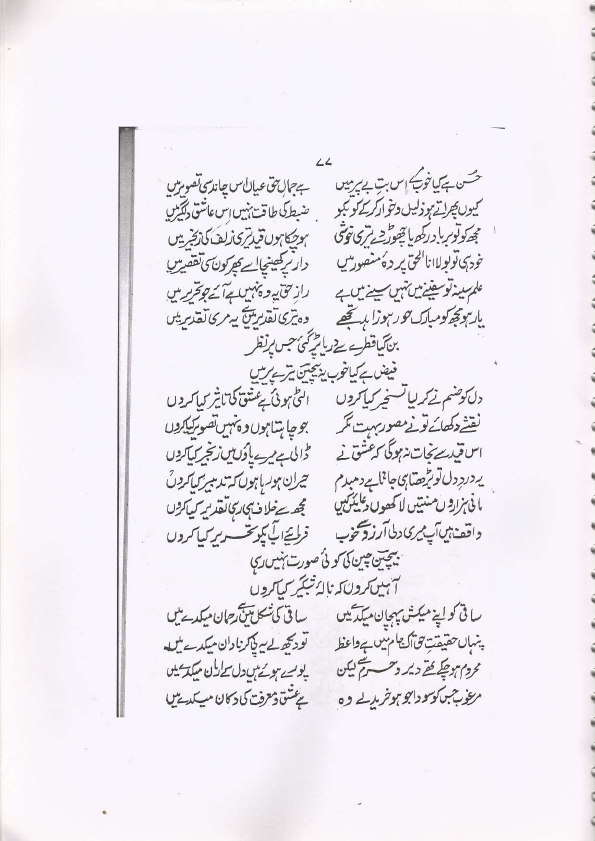 ۷۷
حُسن ہے کیا خوب کے اِس بتِ بے پیر میں ہے جمالِ حق عیاں اس چاند سی تصویر میں
کیوں پھراتے ہو ذلیل و خوار کر کے کو بکو ضبط کی طاقت نہیں اِس عاشقِ دلگیر میں
مجھ کو تو برباد رکھ یا چھوڑ دے تیری خوشی ہو چکا ہوں قید تیری زلف کی زنجیر میں
خود ہی تو بولا انا الحق پردۂ منصور میں دار پر کھینچا اسے پھر کون سی تقصیر میں
علم سینہ تو سفینے میں نہیں سینے میں ہے رازِ حق یہ وہ نہیں ہے آئے جو تحریر میں
یار ہو مجھ کو مبارک حور ہو زاہد تجھے وہ تیری تقدیر میں ہے یہ مری تقدیر میں
بن گیا قطرے سے دریا پڑ گئی جس پر نظر
فیض ہے کیا خوب یہ بیچین تیرے پیر میں
دل کو صنم نے کر لیا تسخیر کیا کروں الٹی ہوئی ہے عشق کی تاثیر کیا کروں
نقشے دکھائے تو نے مصور بہت مگر جو چاہتا ہوں وہ نہیں تصویر کیا کروں
اس قید سے نجات نہ ہوگی کہ عشق نے ڈالی ہے میرے پاؤں میں زنجیر کیا کروں
یہ دردِ دل تو بڑھتا ہی جاتا ہے دمبدم حیران ہو رہا ہوں کہ تدبیر کیا کروں
مانی ہزاروں منتیں لاکھوں دعائیں کیں مجھ سے خلاف ہی رہی تقدیر کیا کروں
واقف ہیں آپ میری دلی آرزو سے خوب فرمائیے اب آپکو تحریر کیا کروں
بیچین چین کی کوئی صورت نہیں رہی
آہیں کروں کہ نالۂ شبگیر کیا کروں
ساقی کو اپنے میکش پہچان میکدے میں ساقی کی شکل میں ہے رحمان میکدے میں
پنہاں حقیقتِ حق اک جام میں ہے واعظ تو دیکھ لے یہ پی کر نادان میکدے میں
محروم ہو چکے تھے دیر و حرم سے لیکن پورے ہوئے ہیں دل کے ارمان میکدے میں
مرغوب جس کو سودا جو ہو خرید لے وہ ہے عشق و معرفت کی دکان میکدے میں